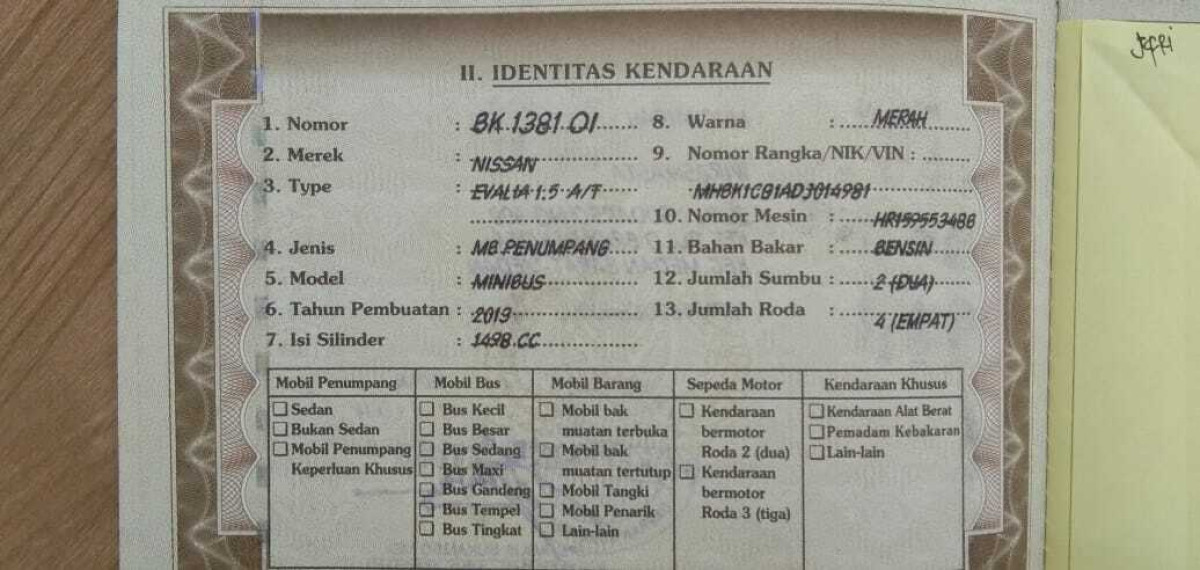 Jefri
II. IDENTITAS KENDARAAN
1. Nomor : BK.1381.OI
2. Merek : NISSAN
3. Type : EVALIA 1.5 A/T
4. Jenis : MB.PENUMPANG
5. Model : MINIBUS
6. Tahun Pembuatan : 2013
7. Isi Silinder : 1498.CC
8. Warna : MERAH
9. Nomor Rangka/NIK/VIN :
MHBK1CG1ADJ014981
10. Nomor Mesin : HR15955348B
11. Bahan Bakar : BENSIN
12. Jumlah Sumbu : 2 (DUA)
13. Jumlah Roda : 4 (EMPAT)
Mobil Penumpang
Sedan
Bukan Sedan
Mobil Penumpang
Keperluan Khusus
Mobil Bus
Bus Kecil
Bus Besar
Bus Sedang
Bus Maxi
Bus Gandeng
Bus Tempel
Bus Tingkat
Mobil Barang
Mobil bak
muatan terbuka
Mobil bak
muatan tertutup
Mobil Tangki
Mobil Penarik
Lain-lain
Sepeda Motor
Kendaraan
bermotor
Roda 2 (dua)
Kendaraan
bermotor
Roda 3 (tiga)
Kendaraan Khusus
Kendaraan Alat Berat
Pemadam Kebakaran
Lain-lain